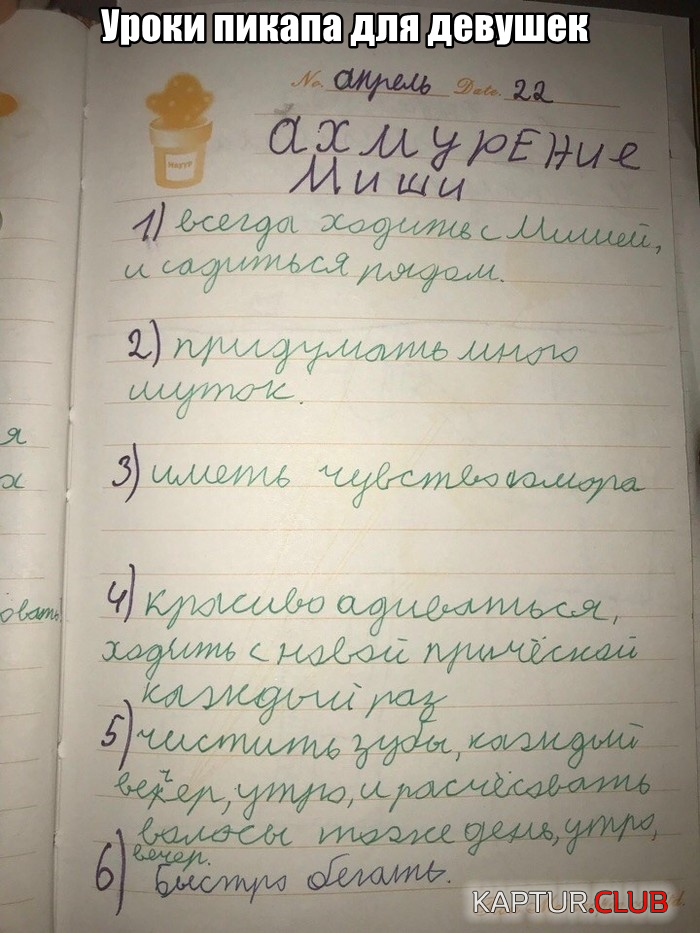 Уроки пикапа для девушек
No. апрель Date. 22
ахмурение
Миши
1) всегда ходить с Мишей,
и садиться рядом.
2) придумать много
шуток.
я
3) иметь чувство юмора
х
4) красиво адиваться,
овать
ходить с новой причёской
каждый раз
5) чистить зубы, каждый
вечер, утро, и расчёсовать
волосы тоже день, утро,
вечер.
6) Быстро бегать.
KAPTUR.CLUB